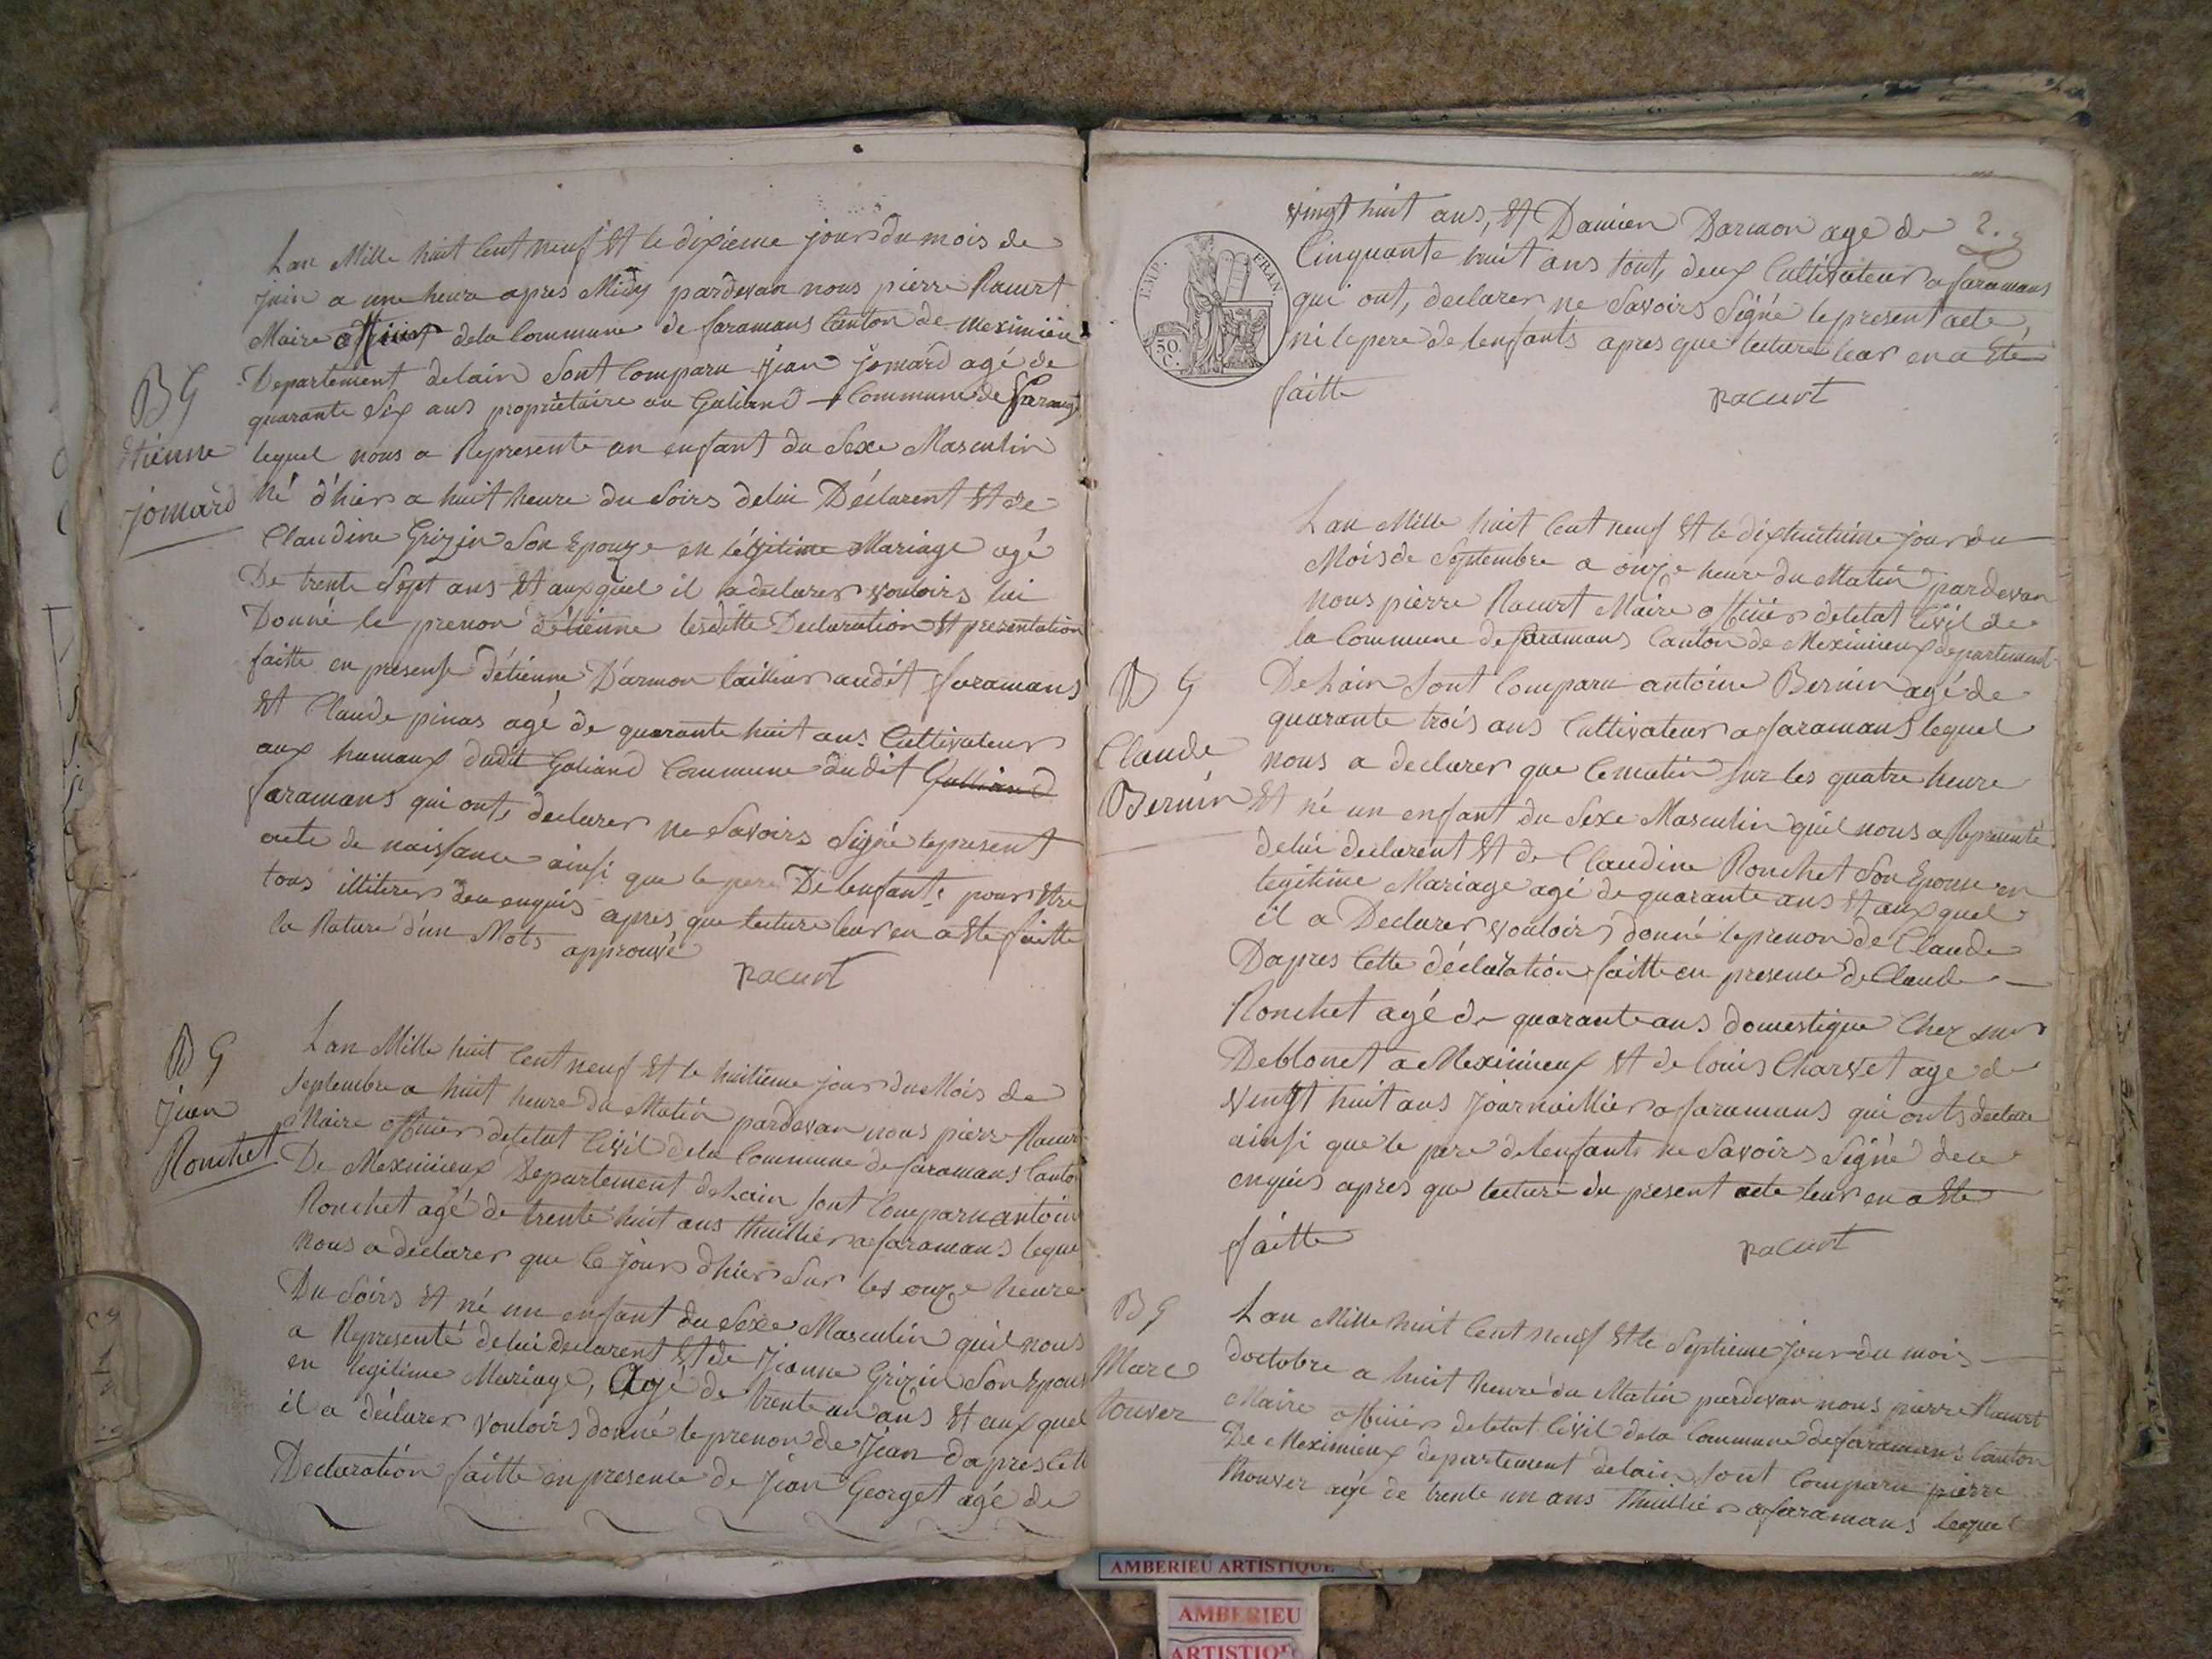 Lan Mille huit Cent neuf Et le dixieme jour du mois de
juin a une heure apres Midy pardevan nous pierre Racurt
Maire officier dela Commune de faramans Canton de Meximieu
Departement delain Sont Comparu jean jomard agé de
quarante Six ans proprietaire au Galiand Commune de
lequel nous a Represente un enfant du Sexe Masculin
Né d'hier a huit heure du Soirs delui Déclarent Et de
Claudine Grizin Son Epouze en légitime Mariage agé
De trente Sept ans Et auxquel il a declarer vouloirs lui
Donné le prenon d'étienne lesditte Declaration Et presentation
faitte en presense d'étienne D'armon taillier audit faramans
Et Claude pinas agé de quarante huit ans Cultivateur
aux hamaux dudit Galiand Commune dudit Galliand
faramans qui ont, declarer ne Savoirs Signé lepresent
acte de naissance ainsi que le pere De lenfant: pour Etre
tous illitirer deu enquis apres que lecture leur en a Ete faitte
la Rature d'un Mots approuvé
Racurt
BG
étienne
jomard
BG
jean
Ronchet
Lan Mille huit Cent neuf Et le huitieme jour du Mois de
Septembre a huit heure du Matin pardevan nous pierre Racurt
Maire officier deletat Civil dela Commune de faramans Canton
De Meximieux Departement de Lain Sont Comparu antoine
Ronchet agé de trente huit ans thuillier a faramans lequel
nous a declarer que le jours d'hier Sur les onze heure
Du Soirs Et né un enfant du Sexe Masculin quil nous
a Representé delui declarent Et de Jeanne Grizin Son Epouse
en legitime Mariage, Agé de trente un ans Et auxquel
il a déclarer vouloirs donné le prenon de Jean dapres Cette
Declaration faitte en presence de Jean Georget agé de
2.
EMP. FRAN.
50 C.
vingt huit ans, Et Damien Darmon age de
Cinquante huit ans tout, deux Cultivateur a faramans
qui ont, declarer ne Savoirs Signé lepresent acte,
ni le pere de lenfants apres que lecture leur en a Ete
faitte
Racurt
Lan Mille huit Cent neuf Et le dixhuitieme jour du
Mois de Septembre a onze heure du Matin pardevan
nous pierre Racurt Maire officier deletat Civil de
la Commune de faramans Canton de Meximieux departement
De Lain Sont Comparu antoine Bernin agé de
quarante trois ans Cultivateur a faramans lequel
nous a declarer que Cematin Sur les quatre heure
Et né un enfant du Sexe Masculin quil nous a Representé
delui declarent Et de Claudine Ronchet Son Epouse en
legitime Mariage agé de quarante ans Et auxquel
il a Declarer vouloirs donné leprenon de Claude
Dapres Cette déclaration faitte en presence de Claude
Ronchet agé de quarante ans domestique Chez
Deblonet a Meximieux Et de louis Charvet age de
vingt huit ans Journaillier a faramans qui onts declare
ainsi que le pere delenfants ne Savoirs Signé deu
enquis apres que lecture du present acte leur en a Ete
faitte
Racurt
BG
Claude
Bernin
BG
Marc
touver
Lan Mille huit Cent neuf Et le Septieme Jour du mois
doctobre a huit heure du Matin pardevan nous pierre Racurt
Maire officier deletat Civil dela Commune de faramans Canton
De Meximieux departement delain Sont Comparu pierre
Thouver agé de trente un ans Thuillier a faramans lequel
AMBERIEU ARTISTIQUE
AMBERIEU
ARTISTIQUE